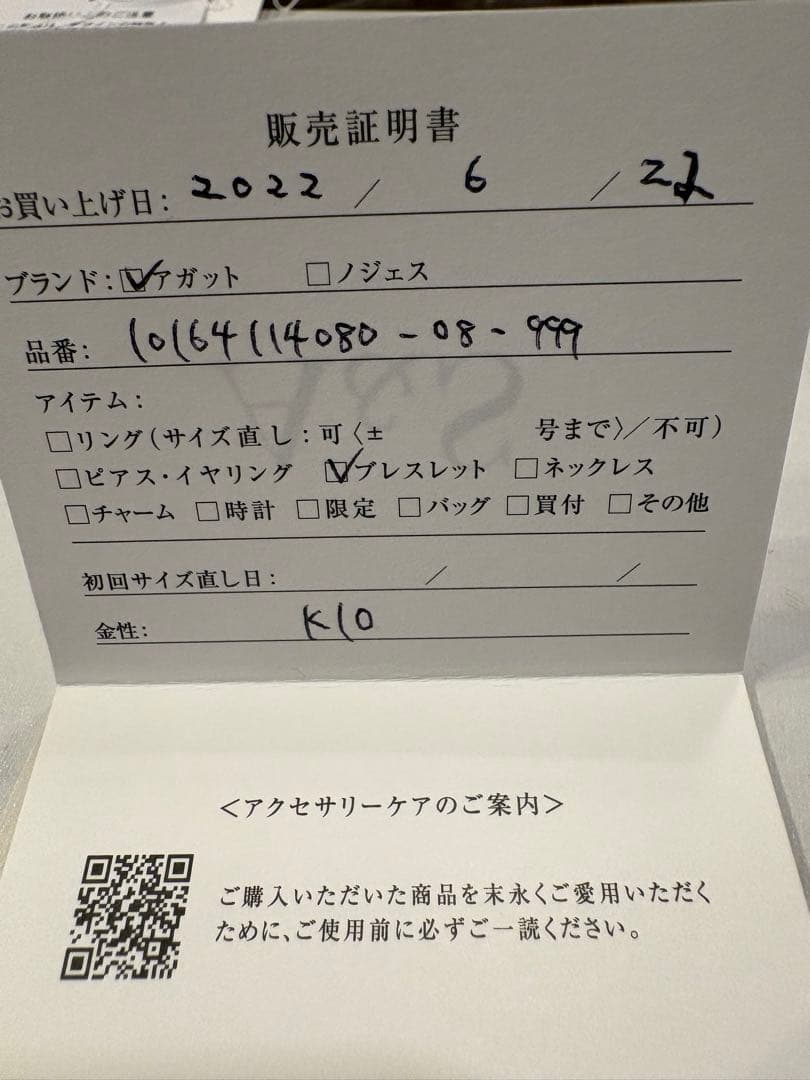 販売証明書
お買い上げ日: 2022 / 6 /
ブランド: ☑アガット □ノジェス
品番: 10164114080-08-999
アイテム:
□リング(サイズ直し:可〈± 号まで〉/不可)
□ピアス・イヤリング ☑ブレスレット □ネックレス
□チャーム □時計 □限定 □バッグ □買付 □その他
初回サイズ直し日: / /
金性: K10
<アクセサリーケアのご案内>
ご購入いただいた商品を末永くご愛用いただく
ために、ご使用前に必ずご一読ください。